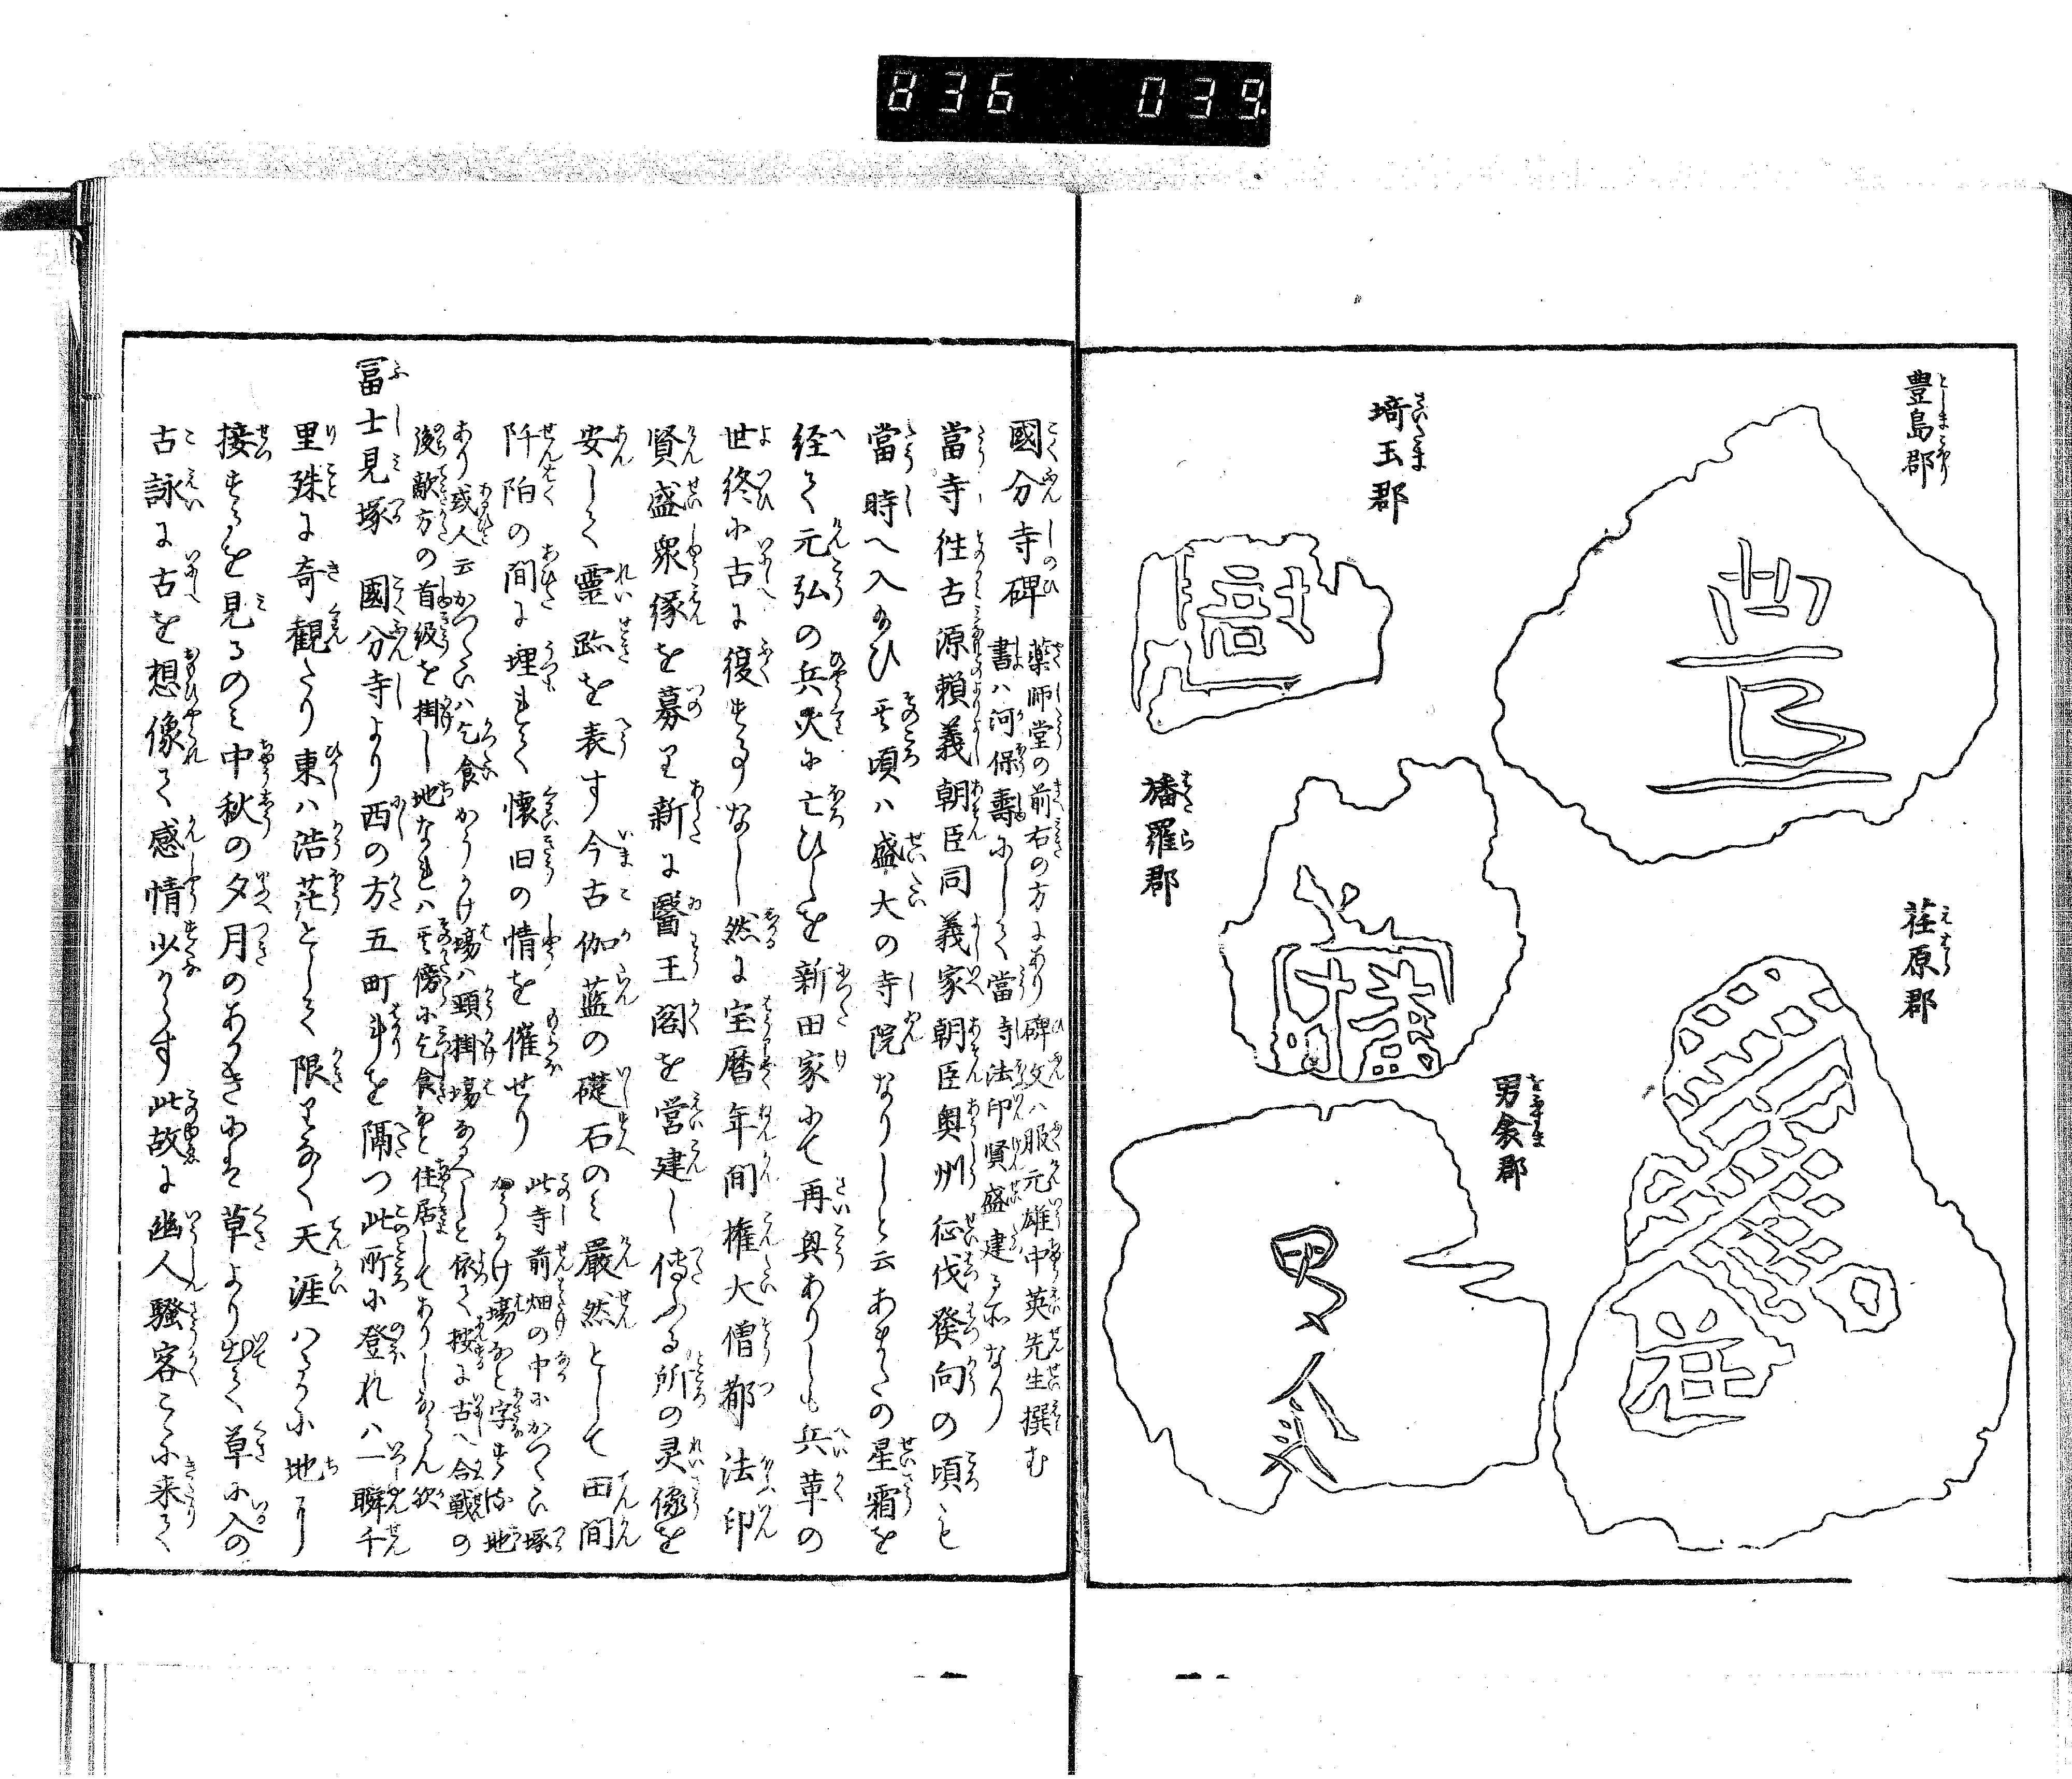 836 039
豊島郡
埼玉郡
荏原郡
旛羅郡
男衾郡
豊
男衾
國分寺碑 薬師堂の前右の方にあり碑文ハ服元雄中英先生撰む
書ハ河保壽にして當寺法印賢盛建る所なり
當寺往古源頼義朝臣同義家朝臣奥州征伐發向の頃も
當時へ入給ひ其頃ハ盛大の寺院なりしと云あまたの星霜を
経て元弘の兵火に亡ひしを新田家にて再興ありしも兵革の
世終に古に復する事なし然に宝暦年間権大僧都法印
賢盛衆縁を募り新に醫王閣を営建し傳ふる所の灵像を
安して靈跡を表す今古伽藍の礎石のミ嚴然として田間
阡陌の間に埋もれて懐旧の情を催せり 此寺前畑の中にかつたい塚
かうかけ場なと字する地
あり或人云かつたいハ乞食かうかけ場ハ頸掛場なるへしと依て按に古へ合戦の
後敵方の首級を掛し地なれハ其傍に乞食なと住居してありしならん歟
冨士見塚 國分寺より西の方五町斗を隔つ此所に登れハ一瞬千
里殊に奇觀たり東ハ浩茫として限りなく天涯はるかに地に
接するを見るのミ中秋の夕月のあかきにも草より出て草に入の
古詠に古を想像て感情少からす此故に幽人騒客こゝに来て